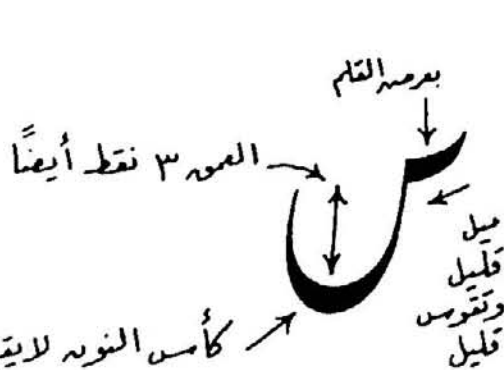 بعرض القلم
العمق ٣ نقط أيضًا
ميل
قليل
وتقوس
قليل
كأس النون لا يقـ